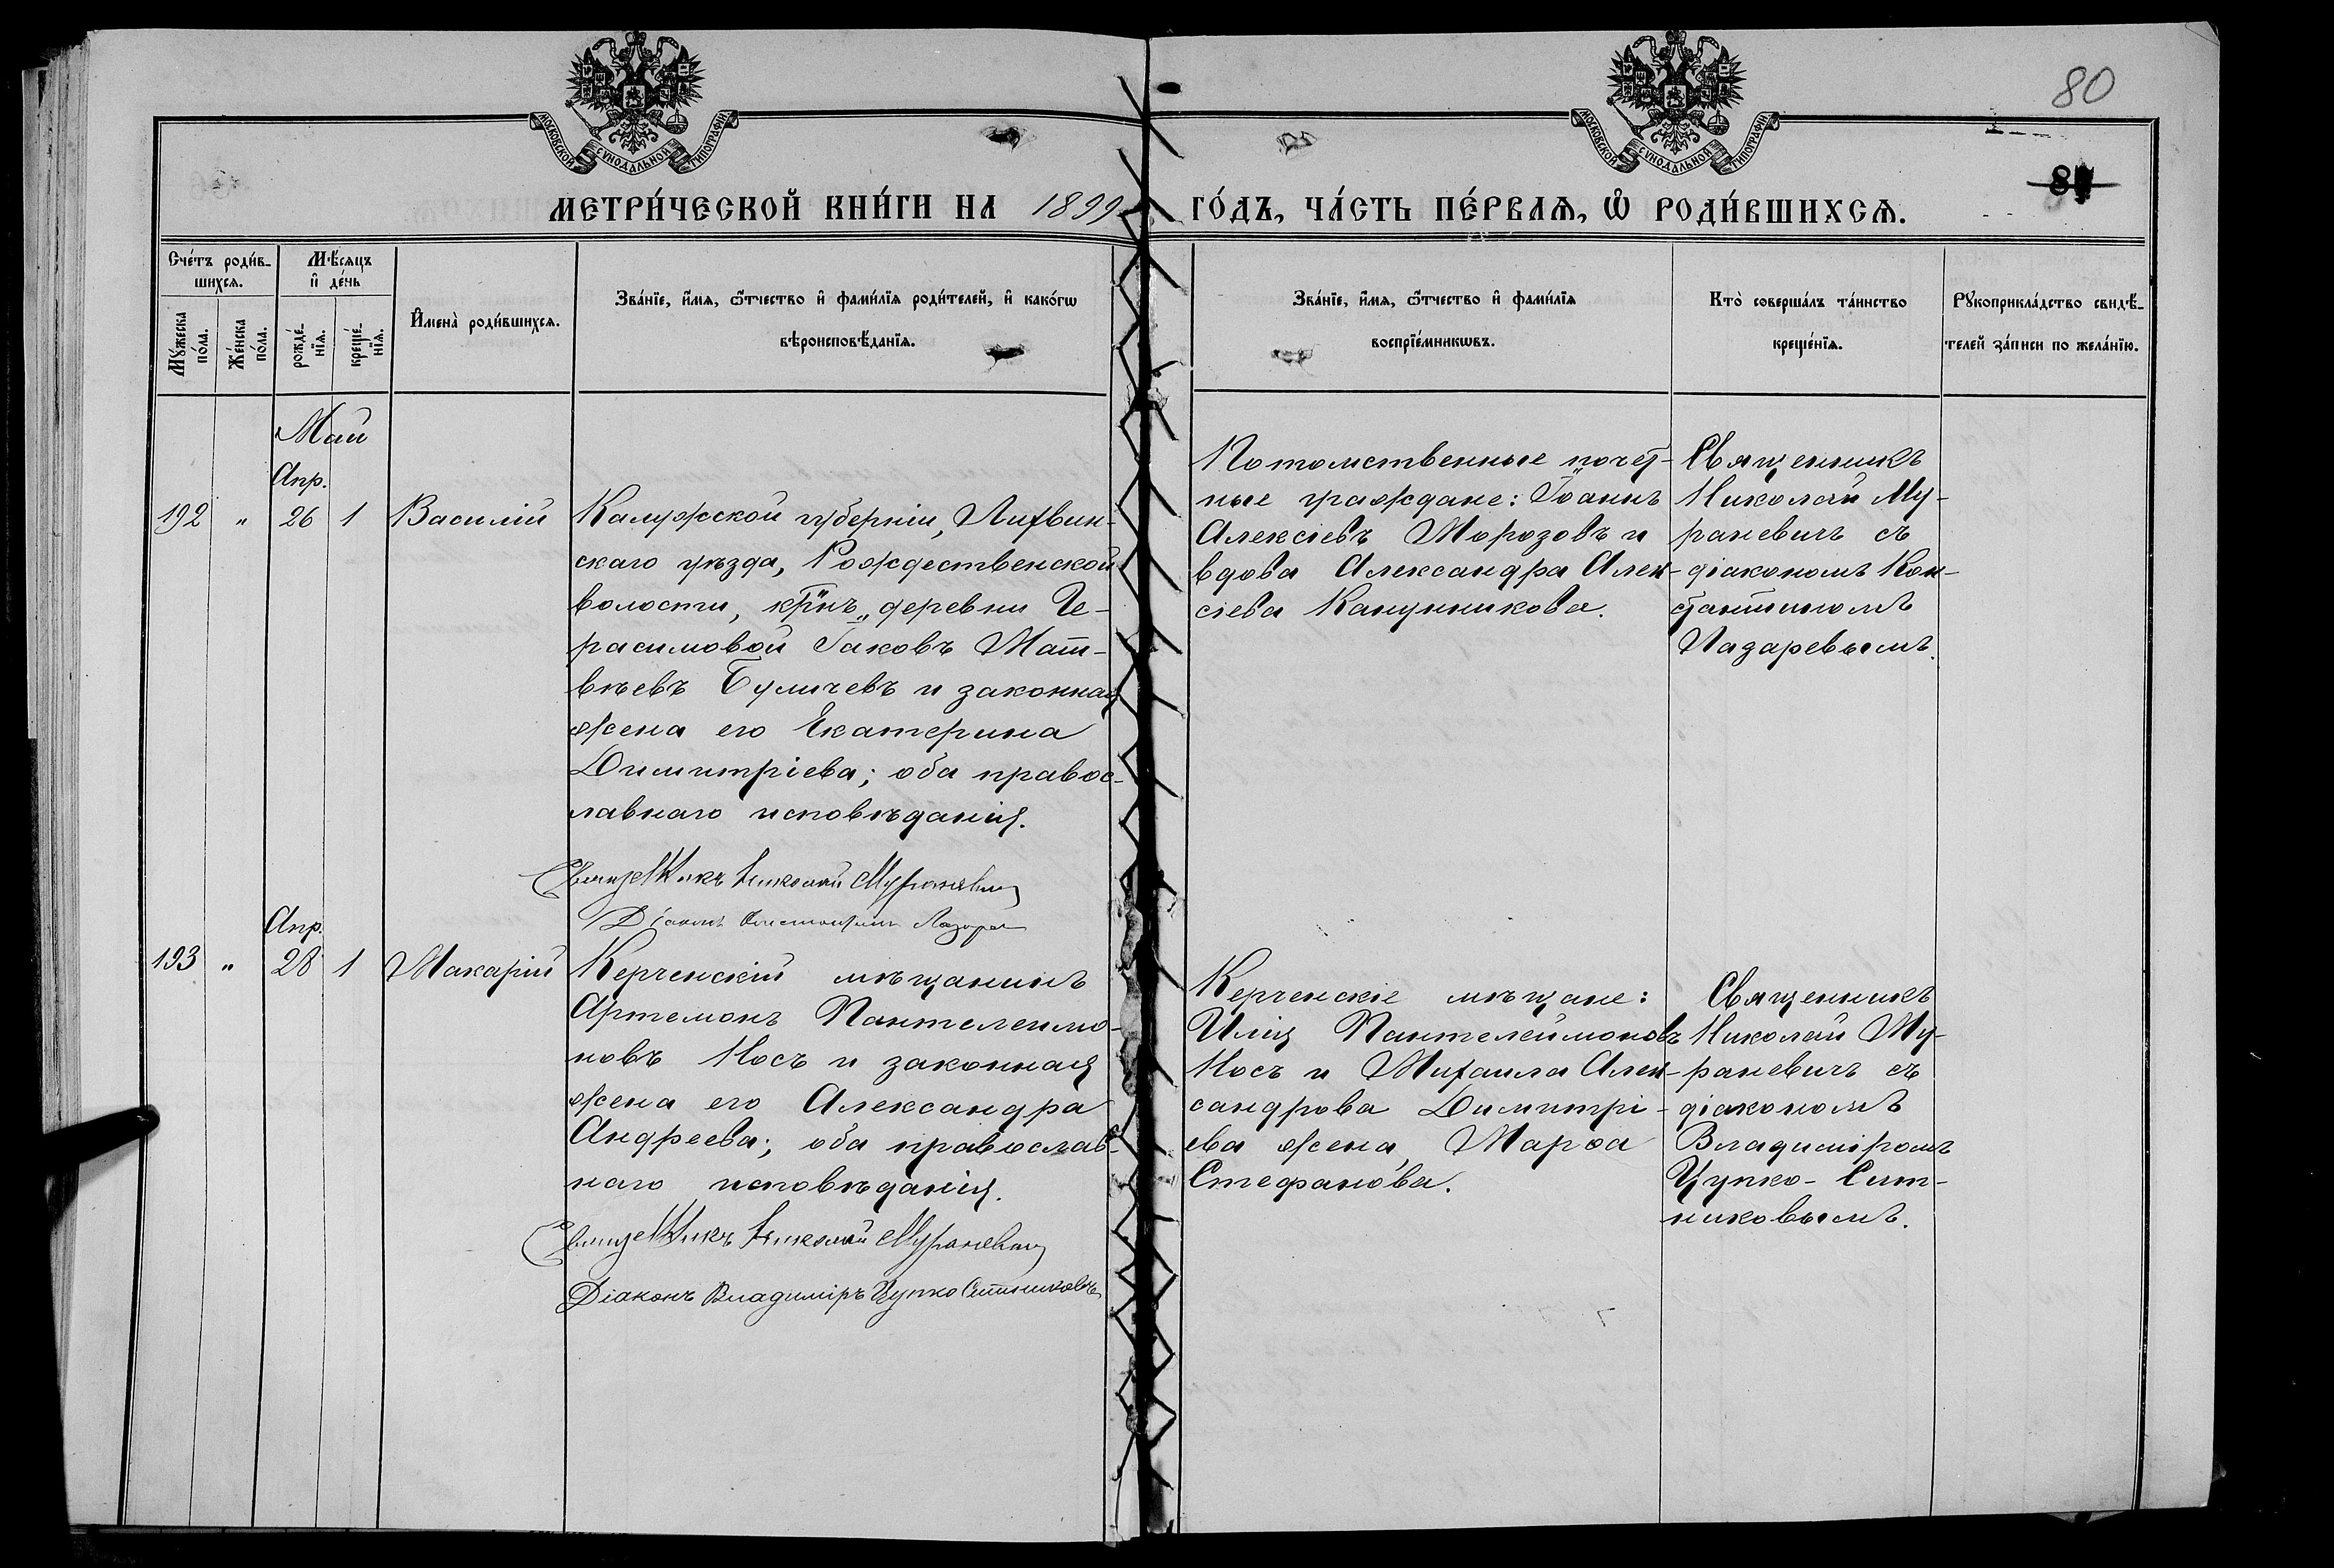 80
МОСКОВСКОЙ СѴНОДАЛЬНОЙ ТИПОГРАФІИ
МОСКОВСКОЙ СѴНОДАЛЬНОЙ ТИПОГРАФІИ
МЕТРИ́ЧЕСКОЙ КНИ́ГИ НА 1899 ГО́ДЪ, ЧА́СТЬ ПЕ́РВАѦ, Ѡ҆ РОДИ́ВШИХСѦ.
Сче́тъ роди́в-
шихсѧ.
Мꙋ́жеска
по́ла.
Же́нска
по́ла.
Мѣ́сѧцъ
и҆ де́нь
рожде́-
нїѧ.
креще́-
нїѧ.
И҆мена̀ роди́вшихсѧ.
Зва́нїе, и҆́мѧ, ѻ҆́тчество и҆ фами́лїѧ роди́телей, и҆ како́гѡ
вѣроисповѣ́данїѧ.
Зва́нїе, и҆́мѧ, ѻ҆́тчество и҆ фами́лїѧ
воспрїе́мникѡвъ.
Кто̀ соверша́лъ та́инство
креще́нїѧ.
Рꙋкоприкла́дство свидѣ́-
телей за́писи по жела́нїю.
Май
Апр.
192 " 26 1 Василій
Калужской губерніи, Лихвин-
скаго уѣзда, Рождественской
волости, крнъ деревни Ге-
расимовой Іаковъ Мат-
вѣевъ Буличевъ и законная
жена его Екатерина
Димитріева; оба правос-
лавнаго исповѣданія.
Священникъ Николай Мураневич
Діаконъ Константинъ Лазарев
Потомственные почет-
ные граждане: Іоаннъ
Алексіевъ Морозовъ и
вдова Александра Алек-
сіева Канунникова.
Священникъ
Николай Му-
раневичъ съ
діакономъ Кон-
стантиномъ
Лазаревымъ.
Апр.
193 " 28 1 Макарій
Керченскій мѣщанинъ
Артемонъ Пантелеимо-
новъ Носъ и законная
жена его Александра
Андреева; оба православ-
наго исповѣданія.
Священникъ Николай Мураневич
Діаконъ Владиміръ Цупко Ситниковъ
Керченскіе мѣщане:
Илія Пантелеймоновъ
Носъ и Михаила Алек-
сандрова Димитрі-
ева жена, Марѳа
Стефанова.
Священникъ
Николай Му-
раневичъ съ
діакономъ
Владиміромъ
Цупко-Сит-
никовымъ.